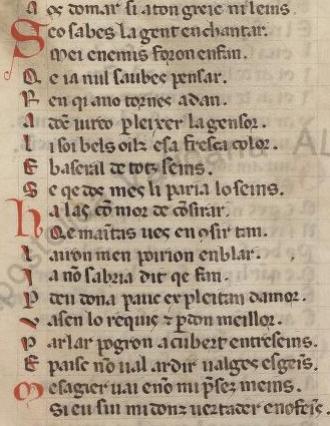 A qs domar si aton greie ni leins.
S eo sabes la gent enchantar.
Mei enemis foron enfan.
Q e ia nul saubes pensar.
R en qi ano tornes adan.
A doē uireo pleixer la gensor.
L i soi bels oilz esa fresca color.
E baseral de totz seins.
S e qe dos mes li paria lo seins.
h a las cō mor de cōsirar.
Q e maītas ues en ɔsir tan.
L airon men poirion enblar.
I a nō sabria dir qe fan.
P deu dona pauc expleitan damor.
V asen lo reqius ⁊ pdon meillor.
P arlar pogron a cubert entreseins.
E puise nō ual ardir ualges esgeīs.
M esagier uai enō mi pſez meins.
Si eu sui midonz uertader enofeīs.